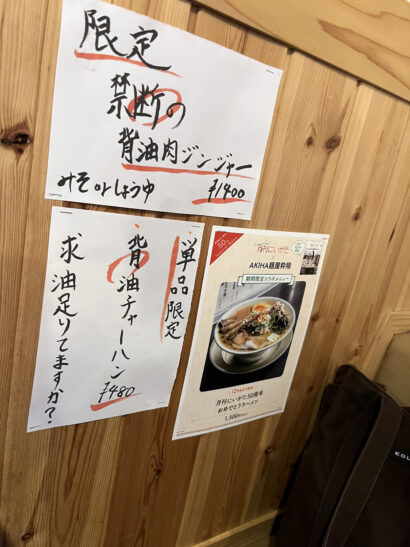 限定
禁断の
背油肉ジンジャー
みそorしょうゆ ¥1400
単品限定
背油チャーハン
¥480
求油足りてますか?
月刊にいがた
AKIHA麺屋粋翔
期間限定コラボメニュー
月刊にいがた50周年
おめでとうラーメン
1,500円
KOU